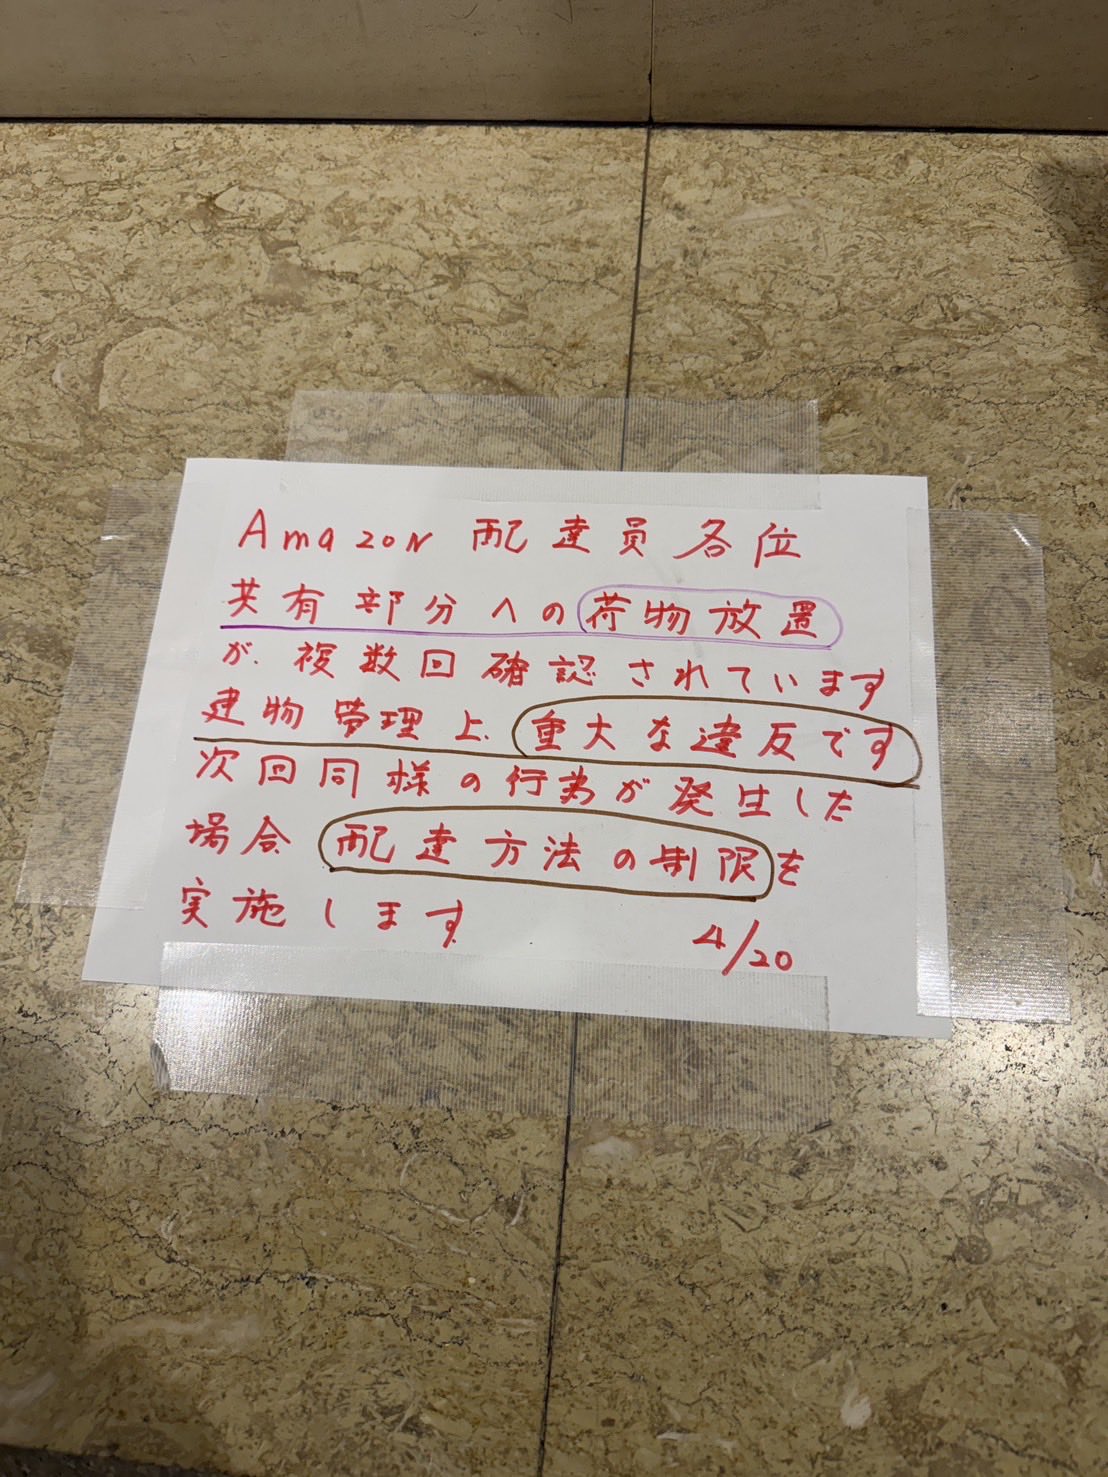 Amazon 配達員各位
共有部分への荷物放置
が、複数回確認されています
建物管理上、重大な違反です
次回同様の行為が発生した
場合、配達方法の制限を
実施します
4/20